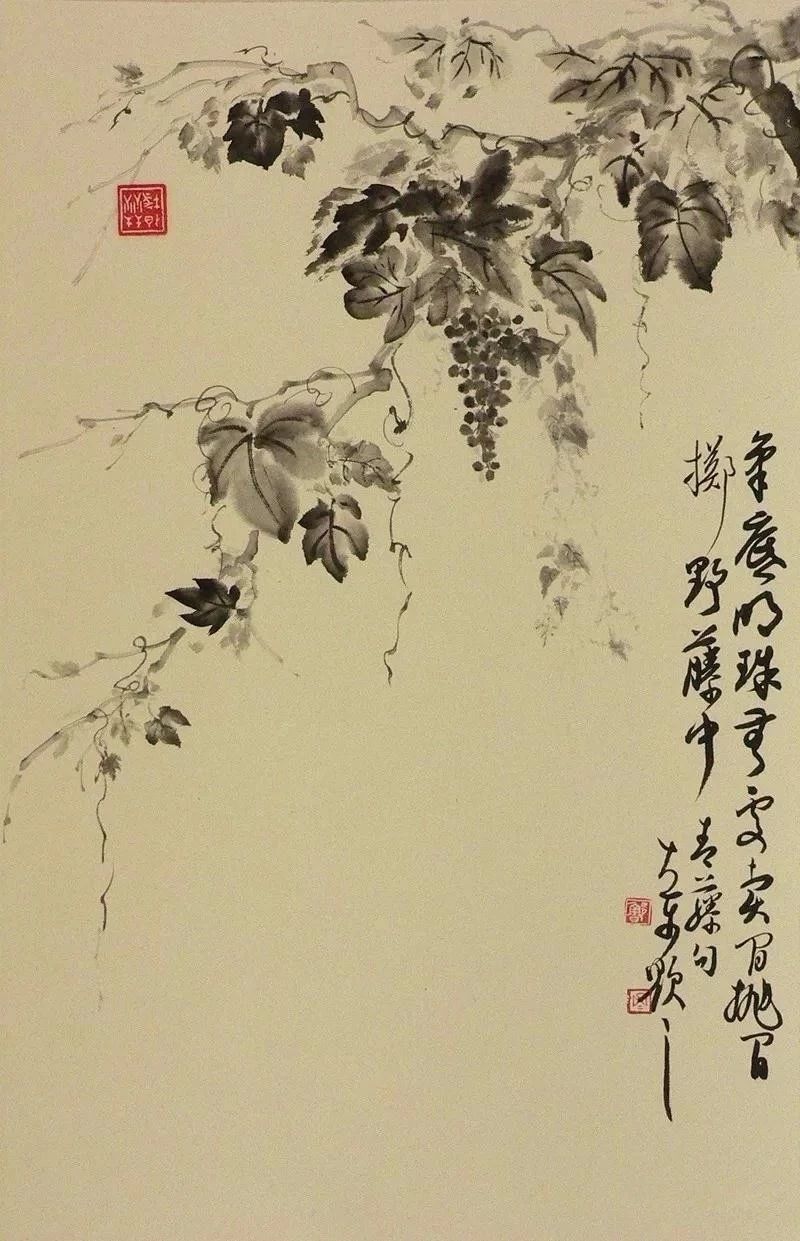 笔底明珠無處賣閒抛閒
擲野藤中
青藤句
大年題之